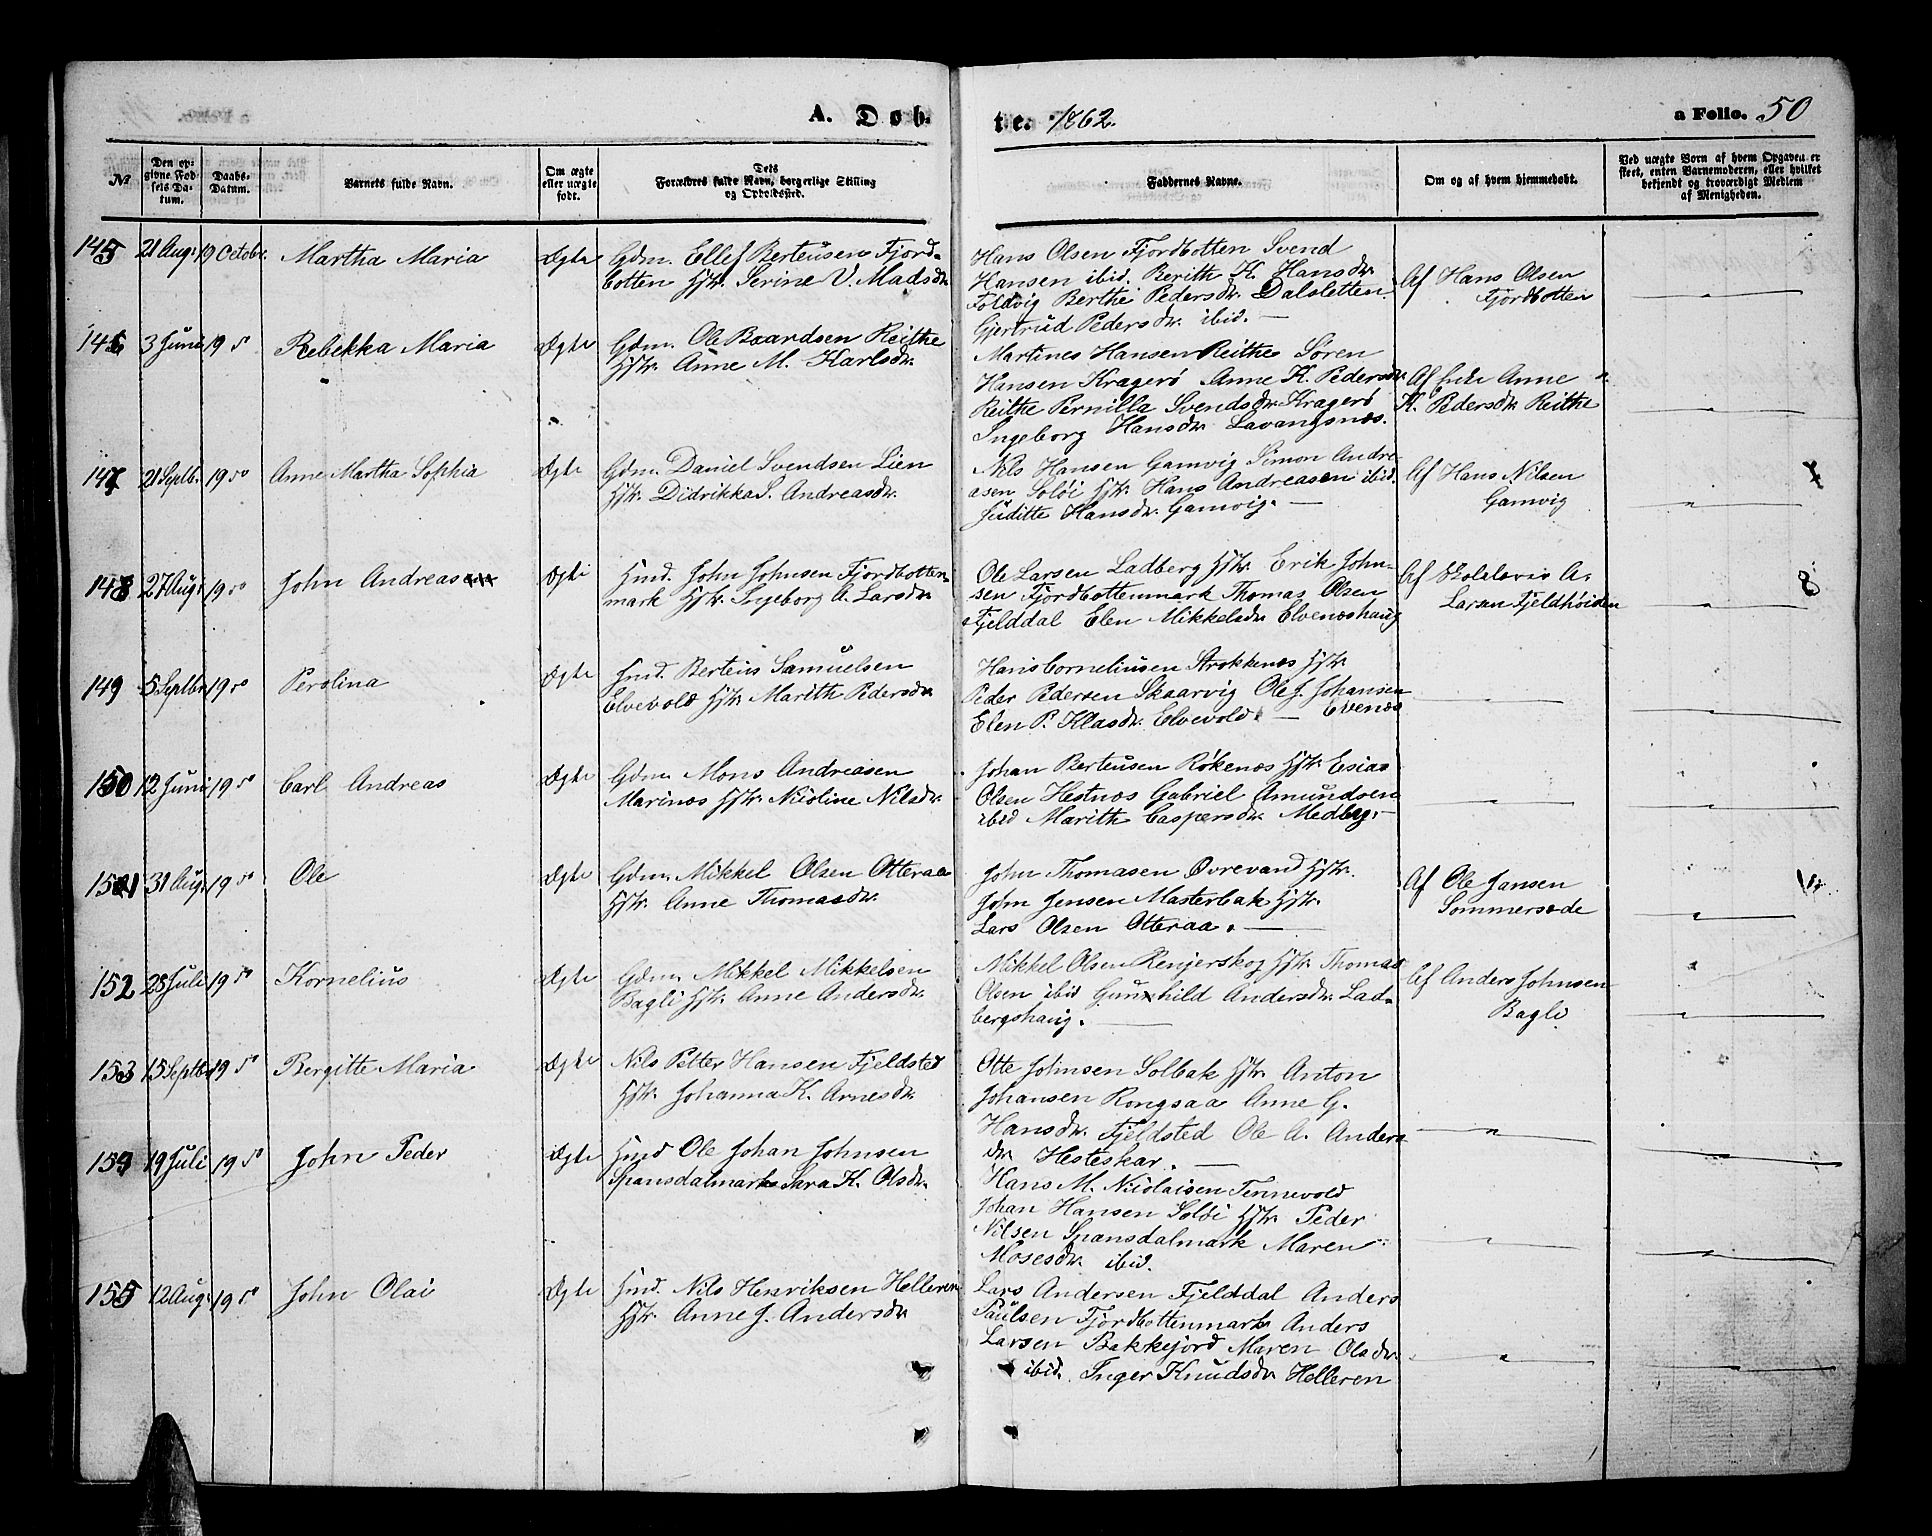 A. Døb-
te. 1862.
a Folio. 50
№
Den op-
givne Fød-
sels Da-
tum.
Daabs-
Datum.
Barnets fulde Navn.
Om ægte
eller uægte
født.
Dets
Forældres fulde Navn, borgerlige Stilling
og Opholdssted.
Faddernes Navne.
Om og af hvem hjemmedøbt.
Ved uægte Børn af hvem Opgaven er
skeet, enten Barnemoderen, eller hvilket
bekjendt og troværdigt Medlem
af Menigheden.
145 21 Aug: 19 Octobr. Martha Maria Ægte Gdm. Ellef Berteusen Fjord-
botten Hstr. Serine V. Madsdr.
Hans Olsen Fjordbotten Svend
Hansen ibid. Berith K. Hansdr.
Foldvig Berthe Pedersdr. Dalsletten
Gjertrud Pedersdr. ibid. —
Af Hans Olsen
Fjordbotten
146 3 Juni 19 do Rebekka Maria Ægte Gdm. Ole Baardsen Reithe
Hstr. Anne M. Karlsdr.
Martines Hansen Reithe Søren
Hansen Kragerø Anne K. Pedersdr.
Reithe Pernilla Svendsdr. Kragerø
Ingeborg Hansdr. Lavangsnæs.
Af Anne
K. Pedersdr. Reithe
147 21 Septb. 19 do Anne Martha Sophia Ægte Gdm. Daniel Svendsen Lien
Hstr. Didrikka S. Andreasdr.
Nils Hansen Gamvig Simon Andre-
asen Soløi Hstr. Hans Andreasen ibid.
Juditte Hansdr. Gamvig. —
Af Hans Nilsen
Gamvig
148 27 Aug: 19 do John Andreas Ægte Hmd. John Johnsen Fjordbotten-
mark Hstr. Ingeborg A. Larsdr.
Ole Larsen Ladberg Hstr. Erik John-
sen Fjordbottenmark Thomas Olsen
Fjelddal Elen Mikkelsdr. Elvenæshaug
Af Skolelærer A.
Larsen Fjeldhøiden
8
149 5 Septbr 19 do Perolina Ægte Hmd. Berteus Samuelsen
Elvevold Hstr. Marith Pedersdr.
Hans Corneliusen Strokkenæs Hstr.
Peder Pedersen Skaarvig Ole J. Johansen
Elen P. Klasdr. Elvevold. — Evenæs
150 12 Juni 19 do Carl Andreas Ægte Gdm. Mons Andreasen
Marinæs Hstr. Nicoline Nilsdr.
Johan Berteusen Røkenæs Hstr. Esias
Olsen Hestnæs Gabriel Amundsen
ibid Marith Caspersdr. Medbyg. —
151 31 Aug: 19 do Ole Ægte Gdm. Mikkel Olsen Otteraa
Hstr. Anne Thomasdr.
John Thomasen Øvrevand Hstr.
John Jensen Masterbak Hstr.
Lars Olsen Otteraa. —
Af Ole Jansen
Sommersæde
152 28 Juli 19 do Kornelius Ægte Gdm. Mikkel Mikkelsen
Bagli Hstr. Anne Andersdr.
Mikkel Olsen Renjerskog Hstr. Thomas
Olsen ibid Gunhild Andersdr. Lad-
bergshaug. —
Af Anders Johnsen
Bagli
153 15 Septbr 19 do Bergitte Maria Ægte Nils Petter Hansen Fjeldsted
Hstr. Johanna K. Arnesdr.
Otte Johnsen Solbak Hstr. Anton
Johansen Rongsaa Anne G.
Hansdr. Fjeldsted Ole A. Anders
dr. Hesteskar. —
154 19 Juli 19 do John Peder Ægte Hmd Ole Johan Johnsen
Spansdalmark Sara K. Olsdr.
Hans M. Nicolaisen Tennevold
Johan Hansen Soløi Hstr. Peder
Nilsen Spansdalmark Maren
Mosesdr. ibid.
155 12 Aug: 19 do John Olai Ægte Hmd. Nils Henriksen Helleren
Hstr. Anne J. Andersdr.
Lars Andersen Fjelddal Anders
Paulsen Fjordbottenmark Anders
Larsen Bakkejord Maren Olsdr.
ibid. Inger Knudsdr. Helleren